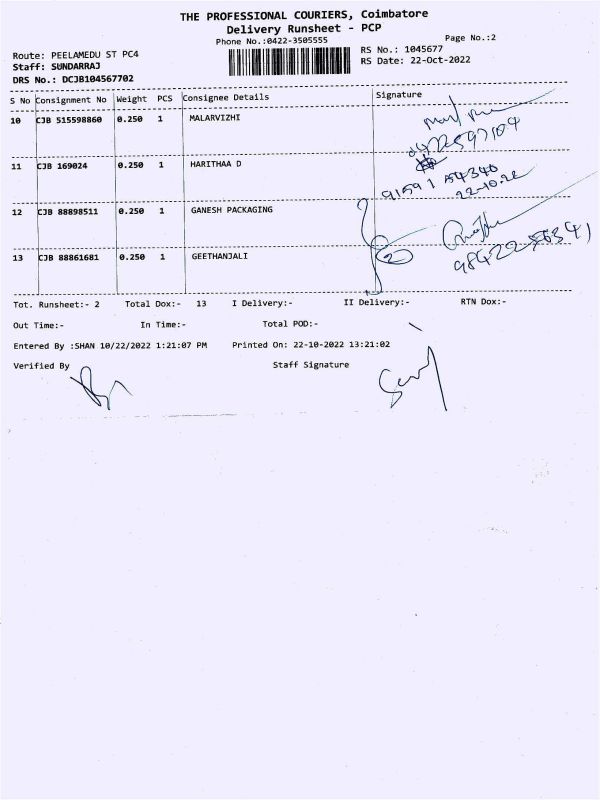 THE PROFESSIONAL COURIERS, Coimbatore
Delivery Runsheet - PCP
Phone No.:0422-3505555
Page No.:2
Route: PEELAMEDU ST PC4
RS No.: 1045677
Staff: SUNDARRAJ
RS Date: 22-Oct-2022
DRS No.: DCJB104567702
S No Consignment No Weight PCS Consignee Details Signature
10 CJB 515598860 0.250 1 MALARVIZHI
11 CJB 169024 0.250 1 HARITHAA D
91591 54340
22-10-22
12 CJB 88898511 0.250 1 GANESH PACKAGING
13 CJB 88861681 0.250 1 GEETHANJALI
2
Tot. Runsheet:- 2 Total Dox:- 13 I Delivery:- II Delivery:- RTN Dox:-
Out Time:- In Time:- Total POD:-
Entered By :SHAN 10/22/2022 1:21:07 PM Printed On: 22-10-2022 13:21:02
Verified By Staff Signature